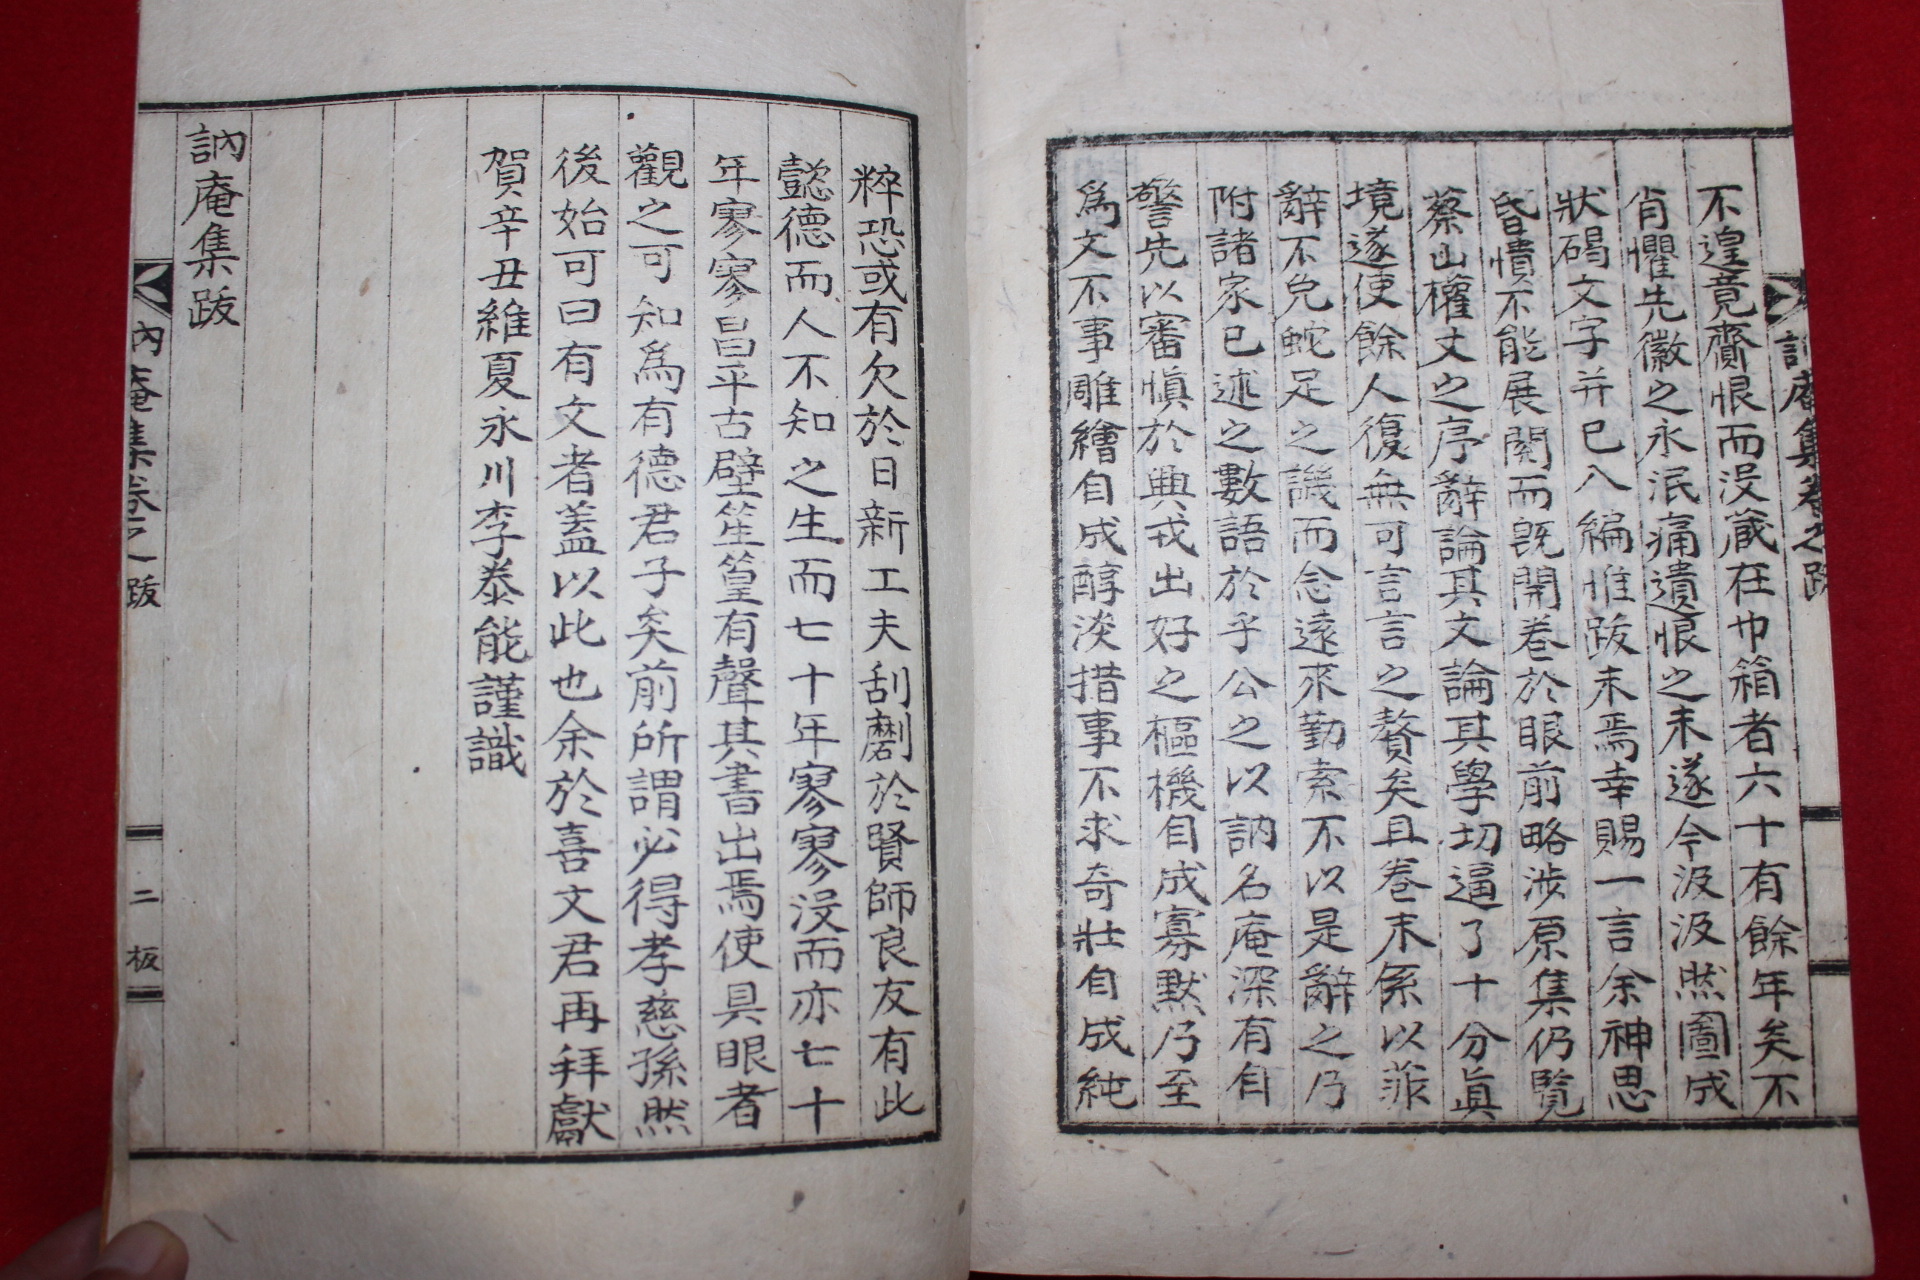 不遑竟齎恨而没蕆在巾箱者六十有餘年矣不
肖懼先徽之永泯痛遺恨之未遂今汲汲然圖成
狀碣文字并已入編惟跋未焉幸賜一言余神思
昏憒不能展閱而旣開卷於眼前略涉原集仍覽
蔡山權丈之序辭論其文論其學切逼了十分眞
境遂使餘人復無可言言之贅矣且卷末係以菲
辭不免蛇足之譏而念遠來勤索不以是辭之乃
附諸家已述之數語於乎公之以訥名庵深有自
警先以審愼於興戎出好之樞機自成寡默乃至
爲文不事雕繪自成醇淡措事不求奇壯自成純
訥庵集卷之跋
粹恐或有欠於日新工夫刮劘於賢師良友有此
懿德而人不知之生而七十年寥寥没而亦七十
年寥寥昌平古壁笙篁有聲其書出焉使具眼者
觀之可知爲有德君子矣前所謂必得孝慈孫然
後始可曰有文者蓋以此也余於喜文君再拜獻
賀辛丑維夏永川李泰能謹識
訥庵集跋
訥庵集卷之跋
二
板